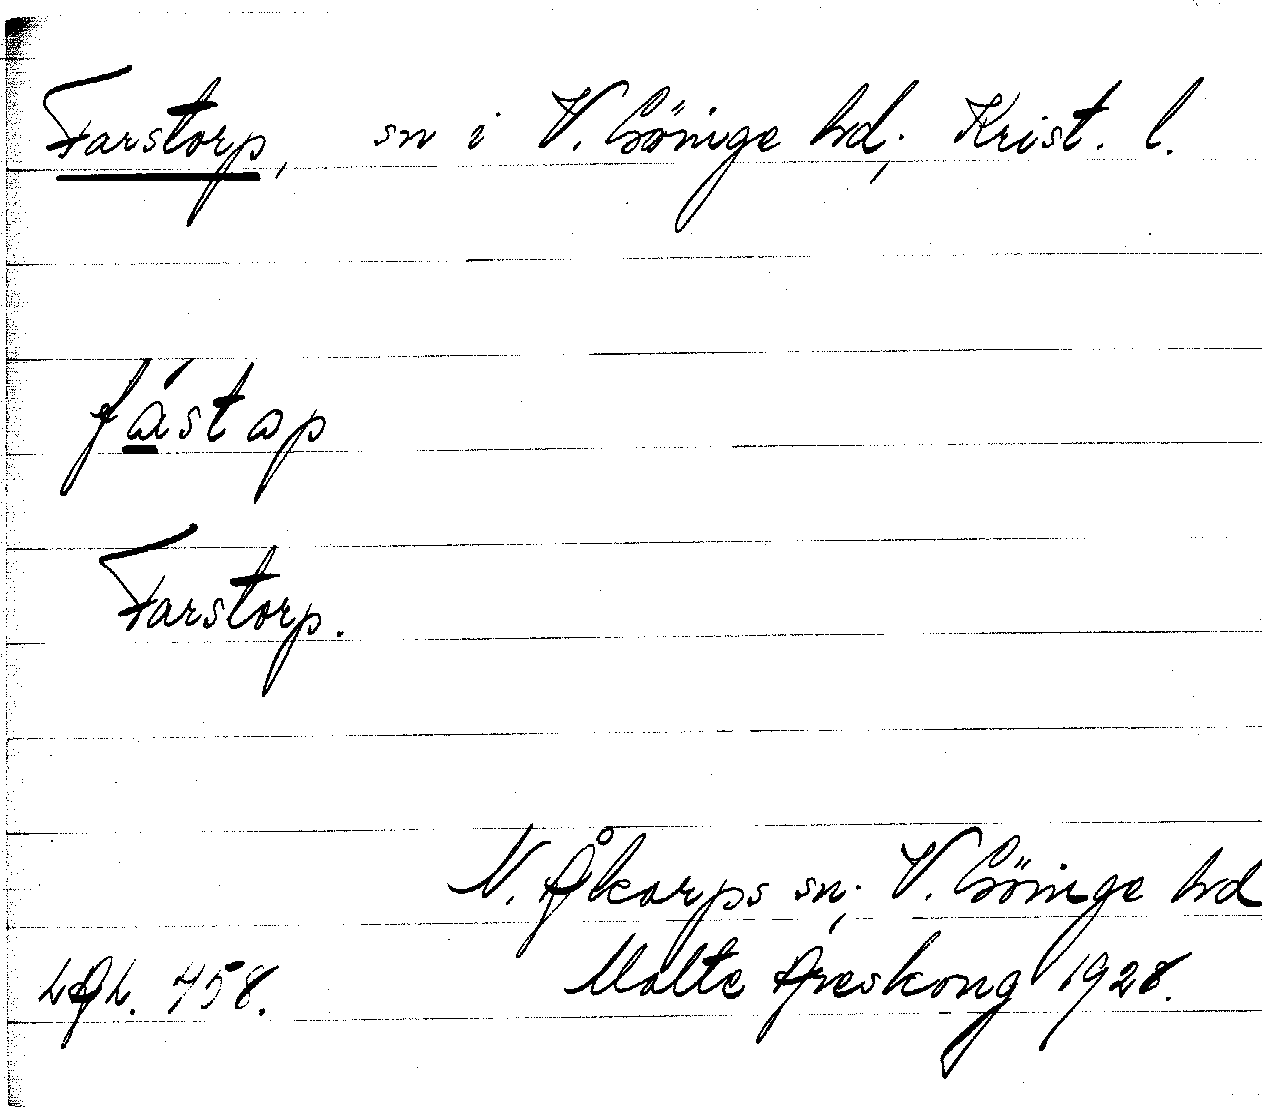 Farstorp, sn i V. Göinge hd; Krist. l.
fástap
Farstorp.
N. Åkarps sn; V. Göinge hd
LAL. 458. Malte Areskoug 1928.